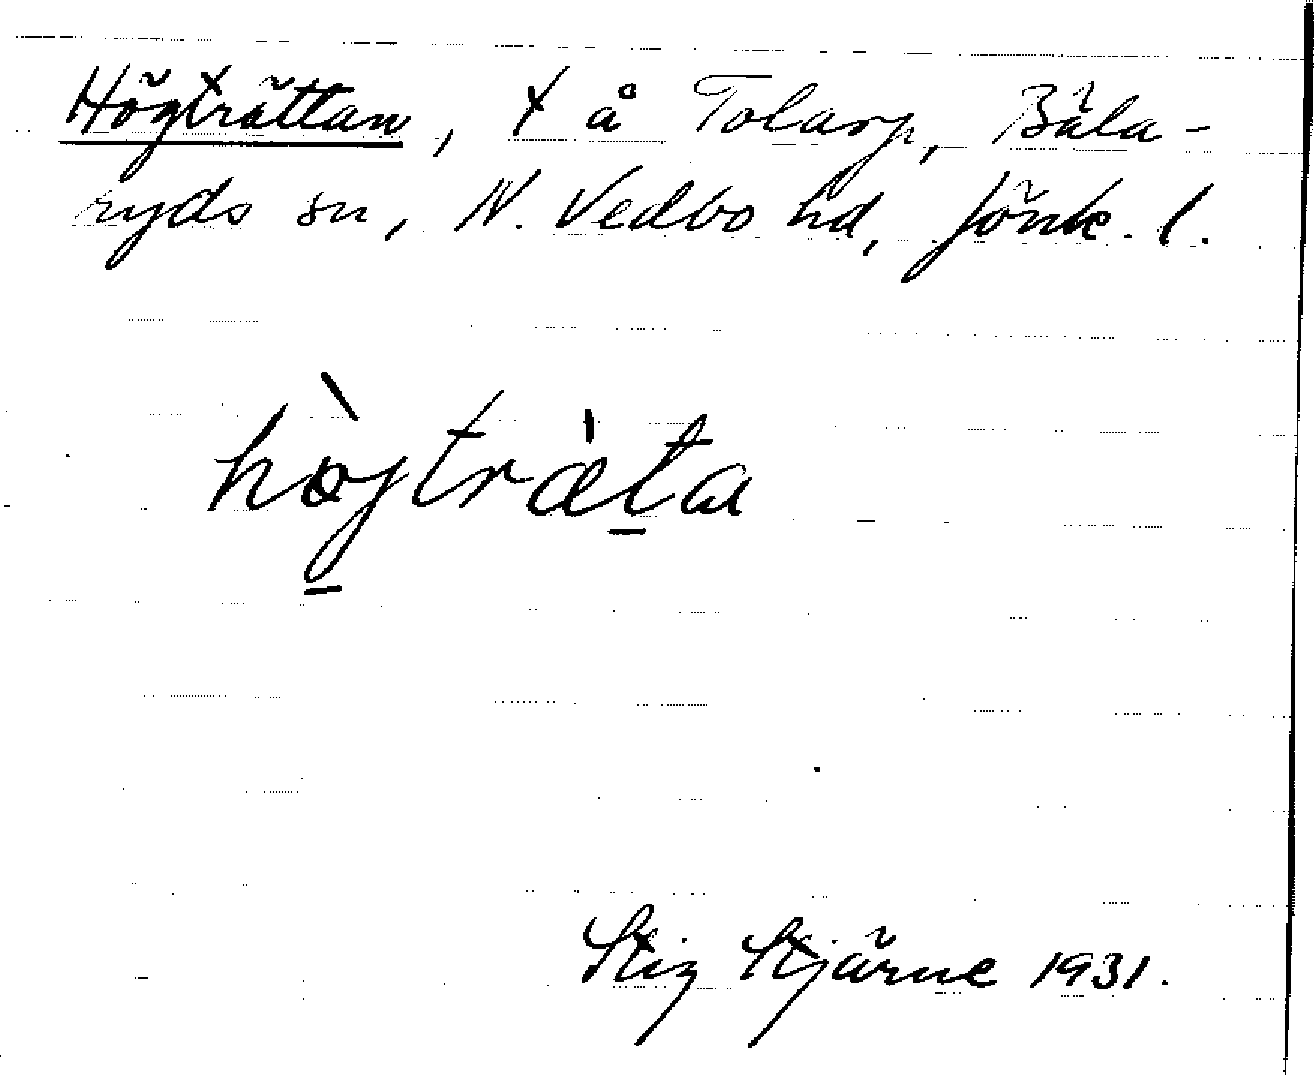 Högträttan, ✗ å Tolarp, Bäla-
ryds sn, N. Vedbo hd, Jönk. l.
hø̀jträ̀ta
Stig Stjärne 1931.